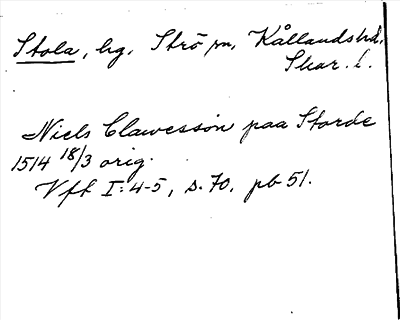 Stola, hg. Strö sn, Kållands hd,
Skar. l.
Niels Clawessøn paa Storde
1514 18/3 orig.
Vff I: 4-5, s. 70. pb 51.